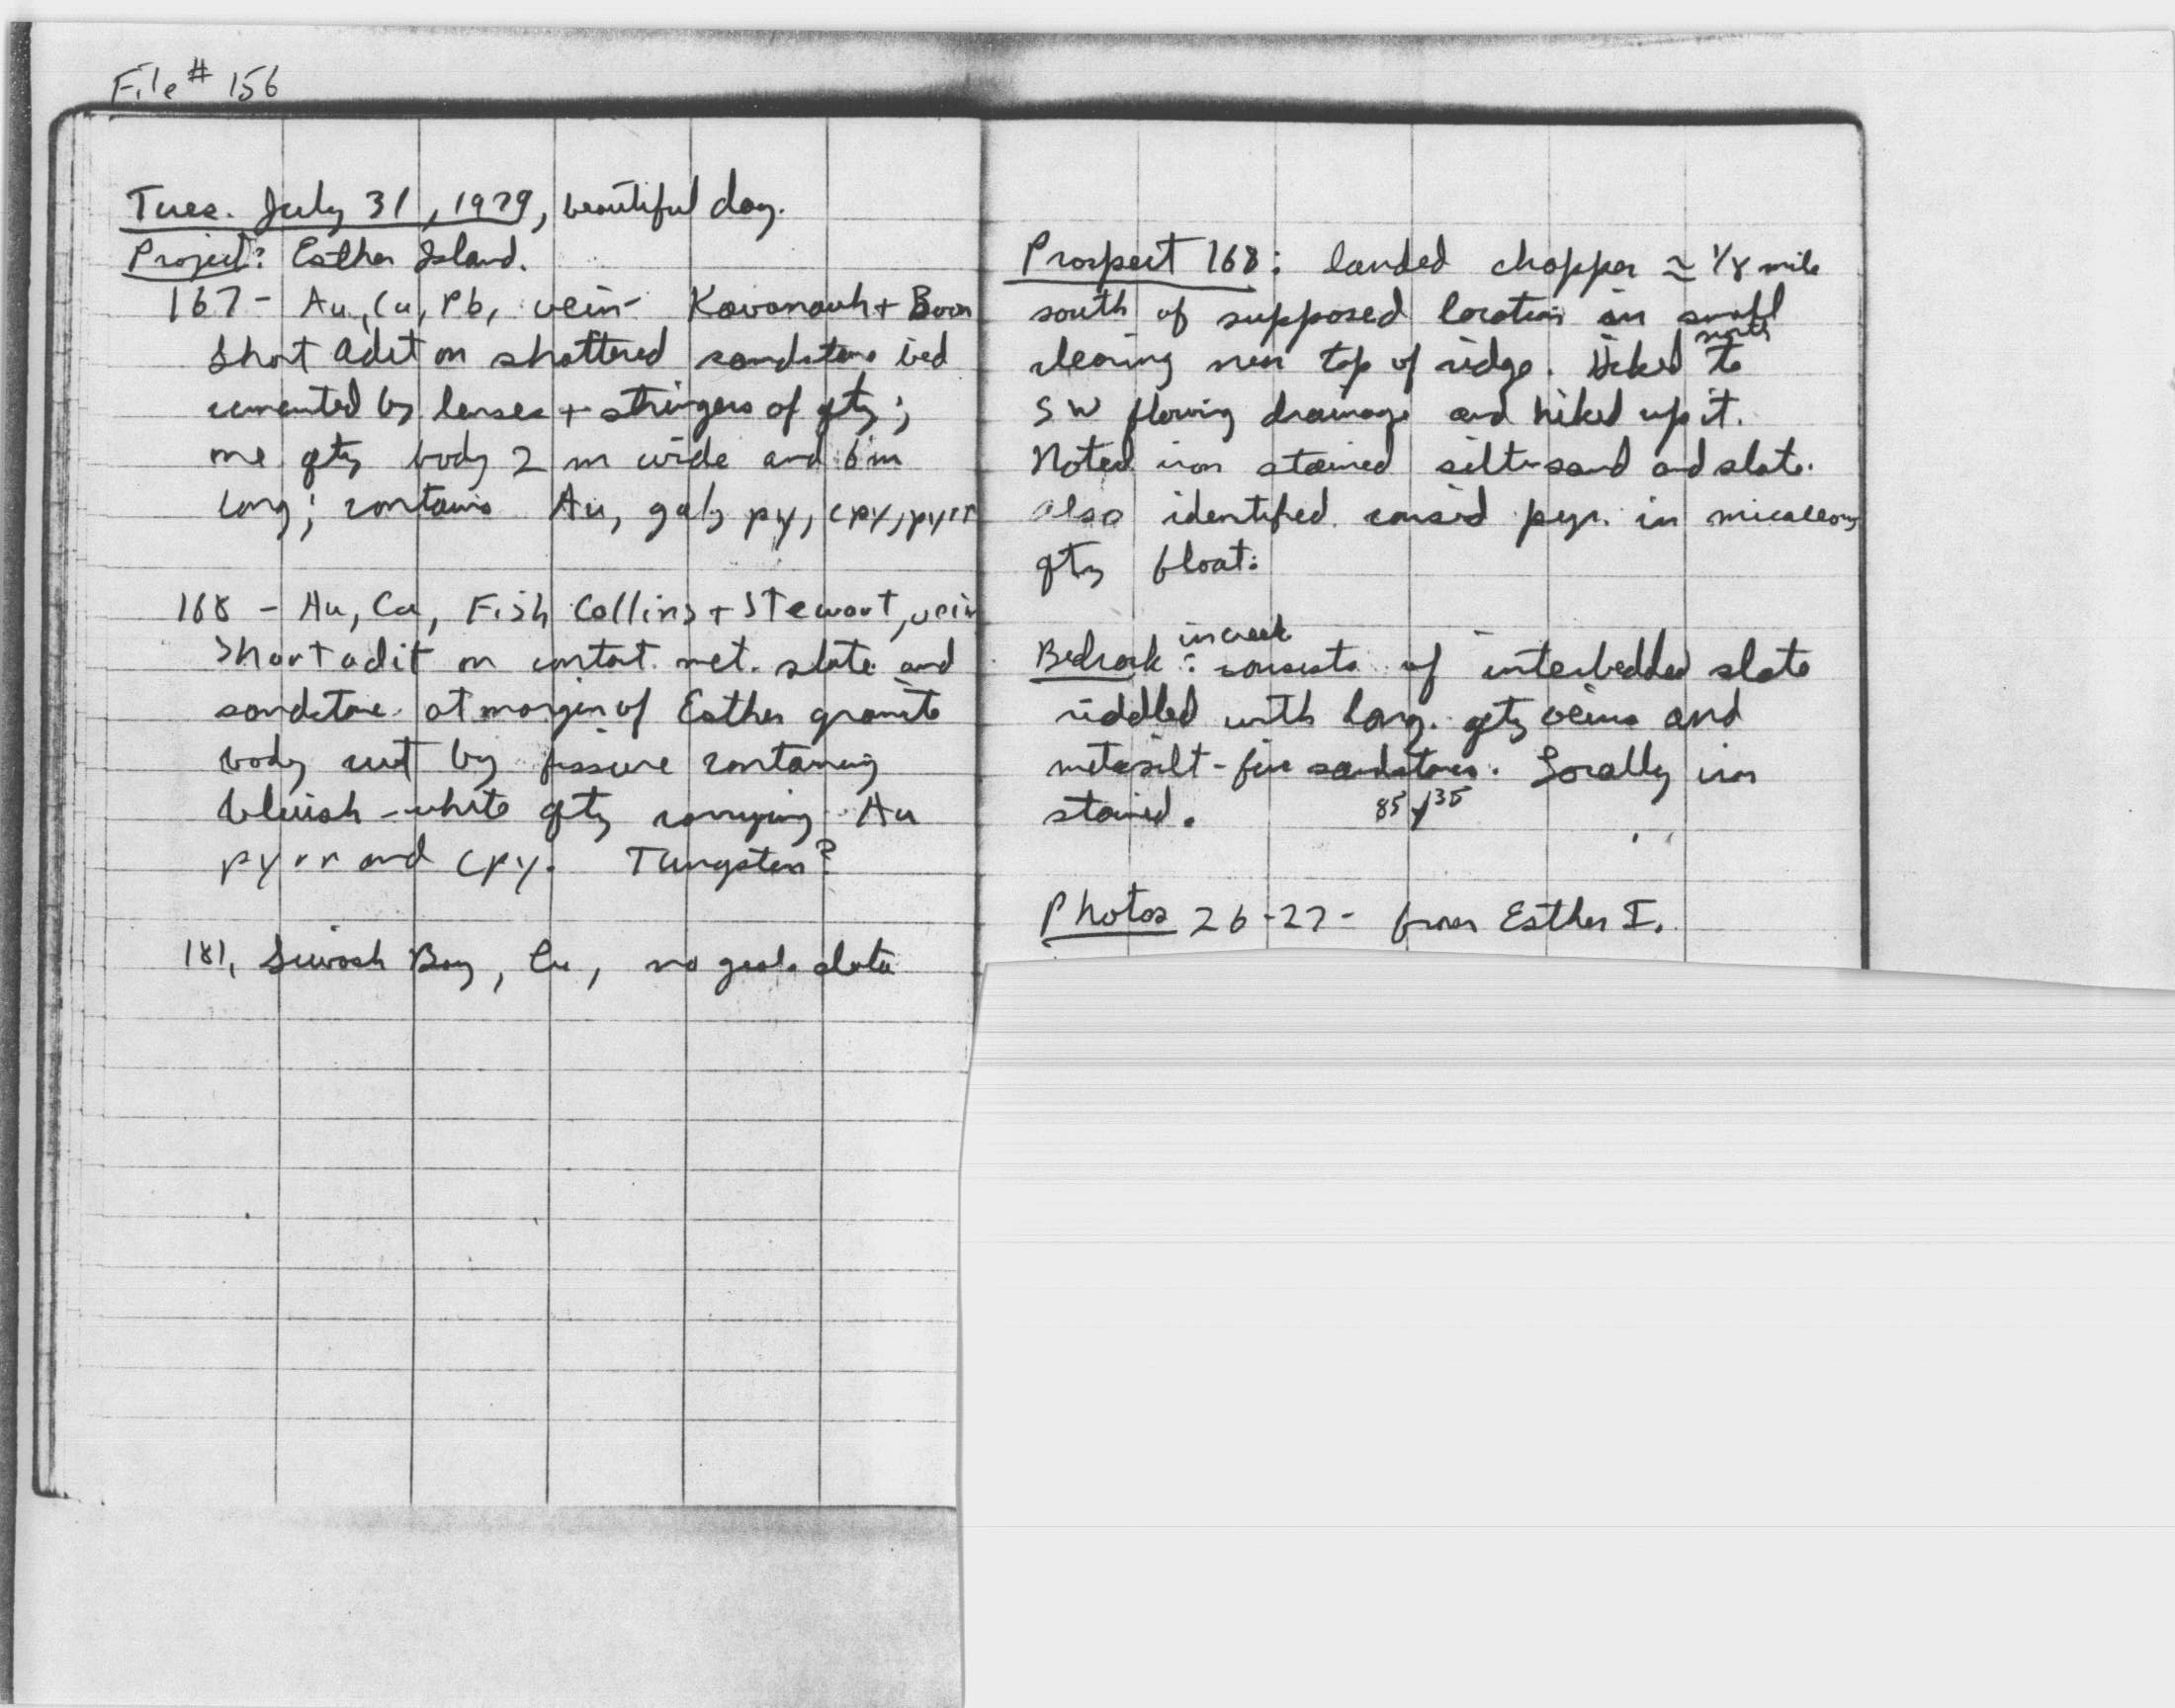 File # 156
Tues. July 31, 1979, beautiful day.
Project: Esther Island.
167 - Au, Cu, Pb, vein - Kavanauh + Boon
Short adit on shattered sandstone bed
cemented by lenses + stringers of qtz;
one qtz body 2 m wide and 6 m
long; contains Au, gal, py, cpy, pyrr
168 - Au, Cu, Fish Collins + Stewart, vein
Short adit on contact met. slate and
sandstone at margin of Esther granite
body cut by fissure containing
bluish-white qtz carrying Au
pyrr and cpy. Tungsten?
181, Siwash Bay, Cu, no geol. data
Prospect 168: landed chopper ≈ 1/8 mile
south of supposed location in small
clearing near top of ridge. Hiked north to
SW flowing drainage and hiked up it.
Noted iron stained silt-sand and slate.
also identified consid pyr. in micaceous
qtz float.
Bedrock in creek: consists of interbedded slate
riddled with qtz veins and
metasilt-fine sandstones. Locally iron
stained. 85 135
Photos 26-27- from Esther I.